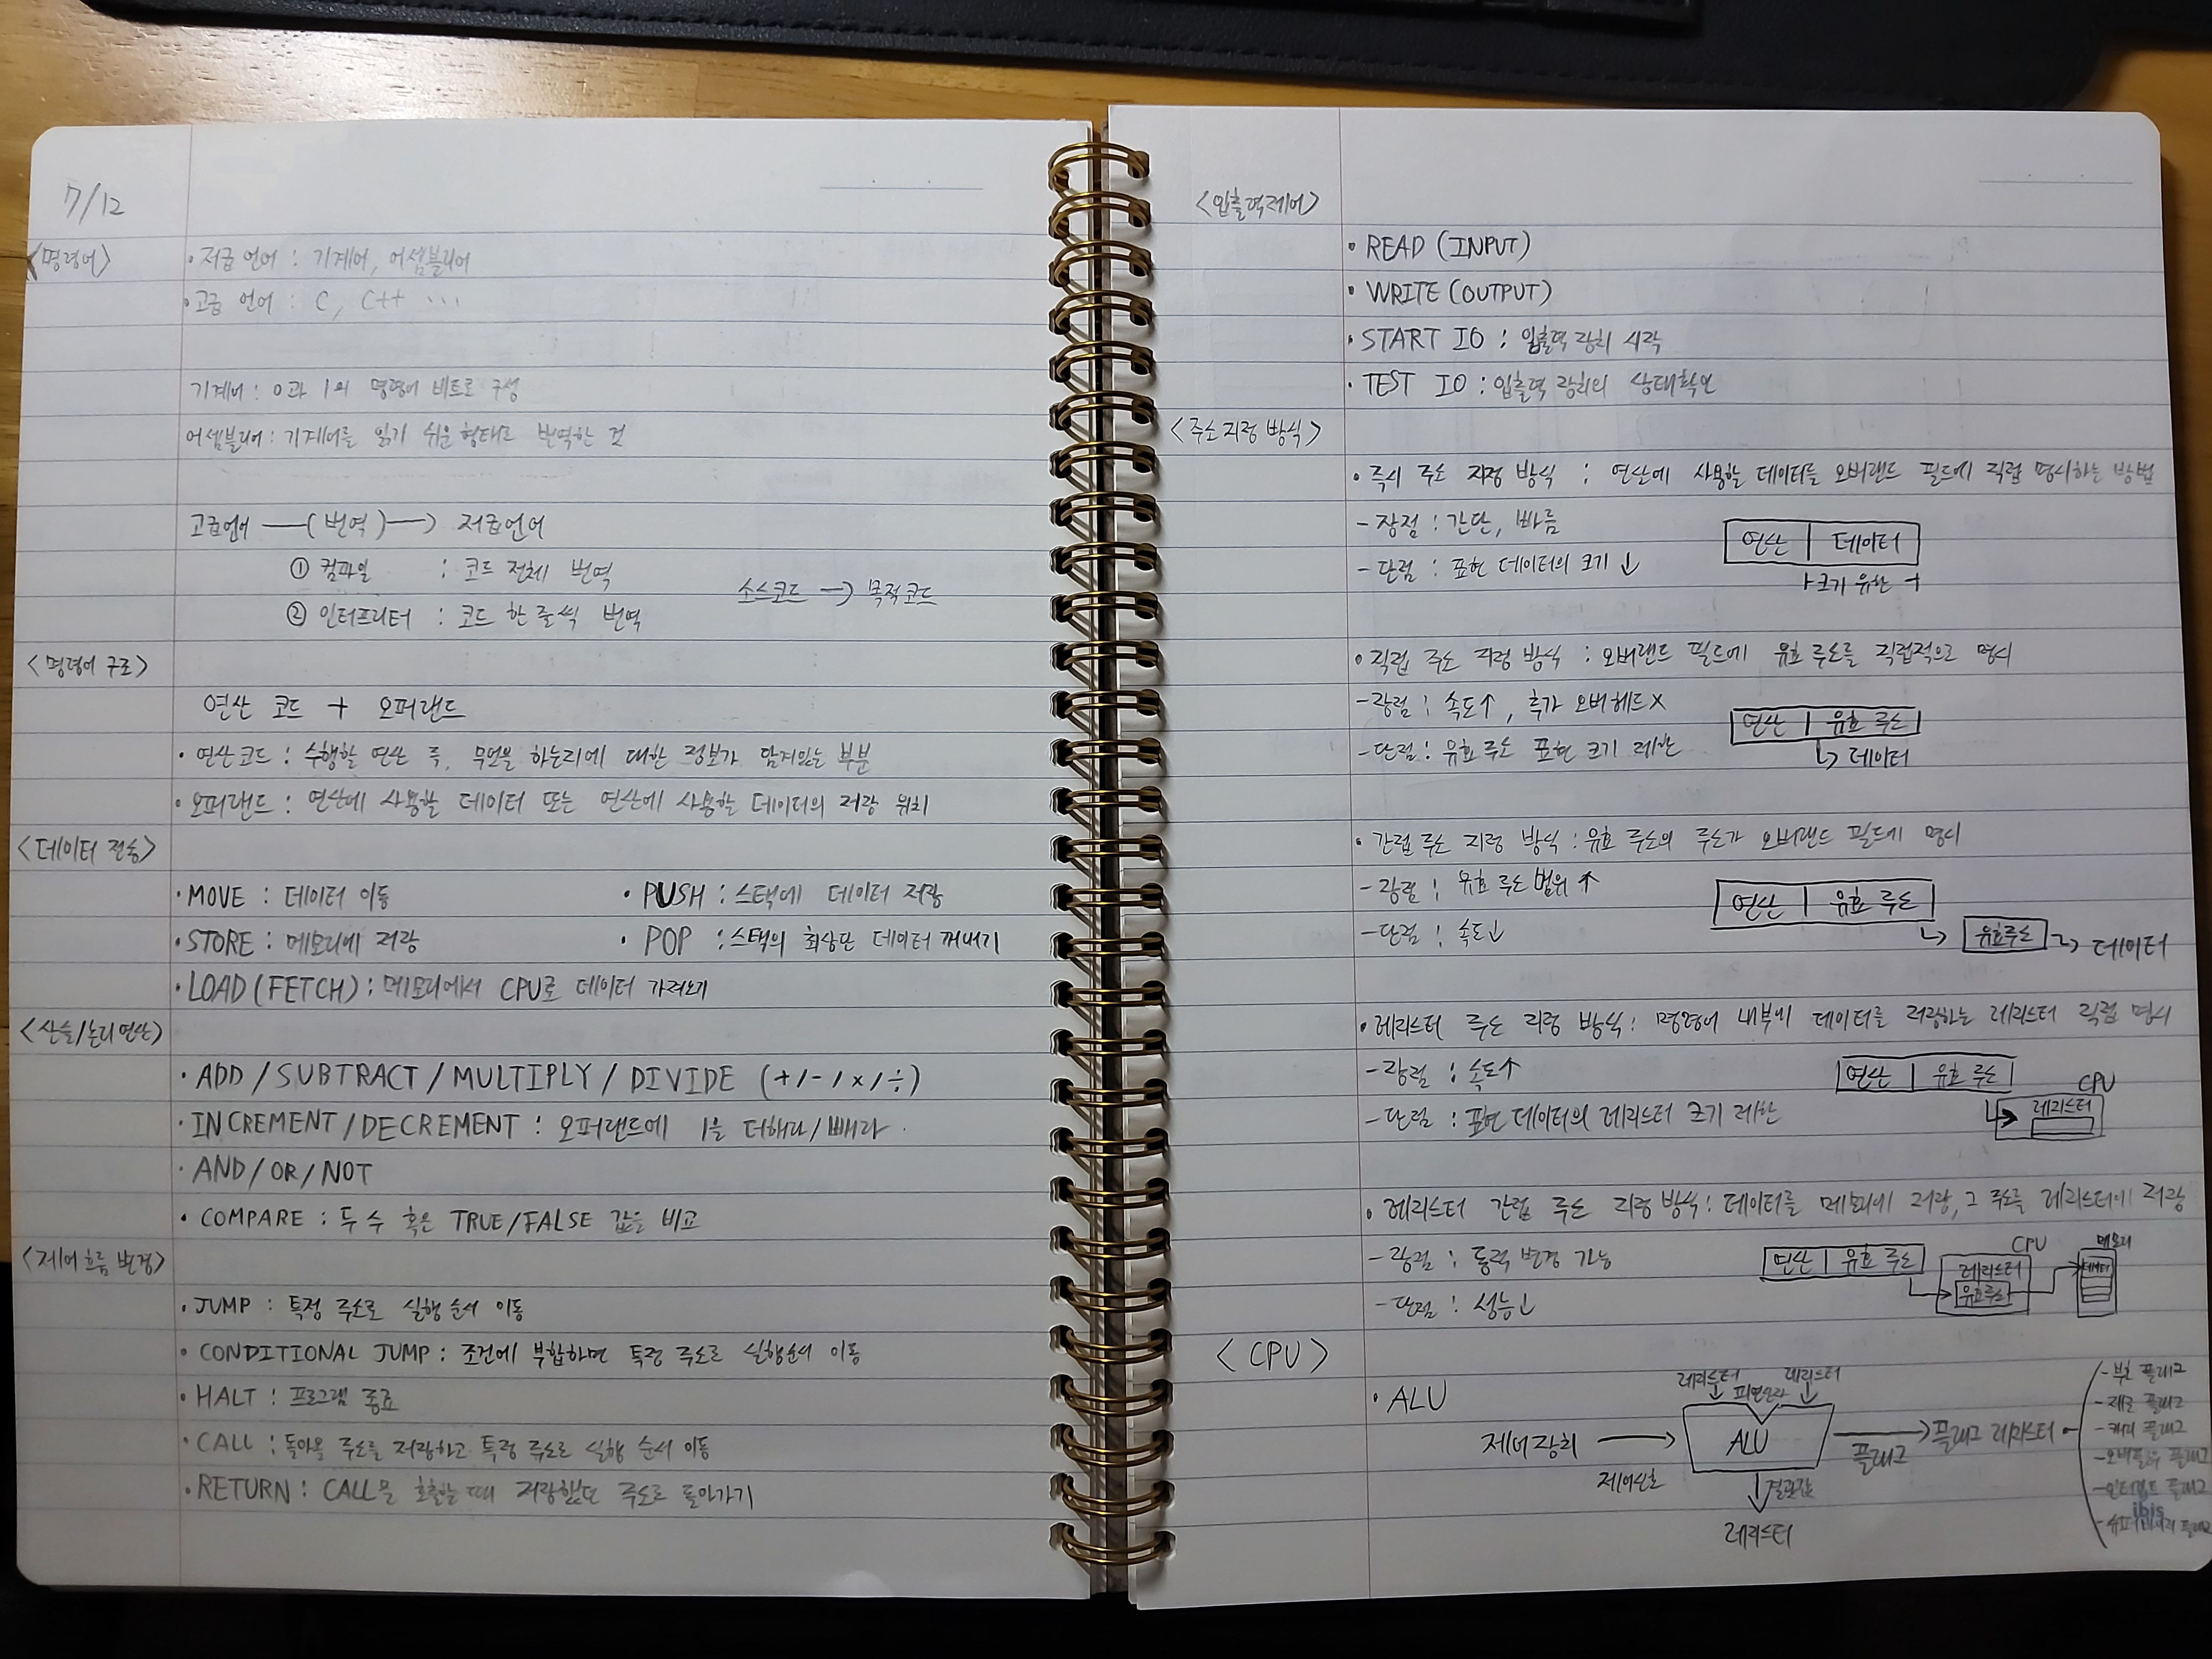 7/12
<명령어>
· 저급 언어 : 기계어, 어셈블리어
· 고급 언어 : C, C++ ···
기계어 : 0과 1의 명령어 비트로 구성
어셈블리어 : 기계어를 읽기 쉬운 형태로 번역한 것
고급언어 —( 번역 )—> 저급언어
① 컴파일 : 코드 전체 번역
소스코드 —> 목적코드
② 인터프리터 : 코드 한 줄씩 번역
<명령어 구조>
연산 코드 + 오퍼랜드
· 연산코드 : 수행할 연산 즉, 무엇을 하는지에 대한 정보가 담겨있는 부분
· 오퍼랜드 : 연산에 사용할 데이터 또는 연산에 사용할 데이터의 저장 위치
<데이터 전송>
· MOVE : 데이터 이동
· PUSH : 스택에 데이터 저장
· STORE : 메모리에 저장
· POP : 스택의 최상단 데이터 꺼내기
· LOAD (FETCH) : 메모리에서 CPU로 데이터 가져오기
<산술/논리 연산>
· ADD / SUBTRACT / MULTIPLY / DIVIDE (+/-/×/÷)
· INCREMENT / DECREMENT : 오퍼랜드에 1을 더해라/빼라.
· AND / OR / NOT
· COMPARE : 두 수 혹은 TRUE/FALSE 값을 비교
<제어 흐름 변경>
· JUMP : 특정 주소로 실행 순서 이동
· CONDITIONAL JUMP : 조건에 부합하면 특정 주소로 실행순서 이동
· HALT : 프로그램 종료
· CALL : 돌아올 주소를 저장하고 특정 주소로 실행 순서 이동
· RETURN : CALL을 호출할 때 저장했던 주소로 돌아가기
<입출력 제어>
· READ (INPUT)
· WRITE (OUTPUT)
· START IO : 입출력 장치 시작
· TEST IO : 입출력 장치의 상태확인
<주소 지정 방식>
· 즉시 주소 지정 방식 : 연산에 사용할 데이터를 오버랜드 필드에 직접 명시하는 방법
- 장점 : 간단, 빠름
연산 | 데이터
- 단점 : 표현 데이터의 크기 ↓
크기 유한
· 직접 주소 지정 방식 : 오버랜드 필드에 유효 주소를 직접적으로 명시
- 장점 : 속도↑, 추가 오버헤드 X
연산 | 유효 주소
- 단점 : 유효 주소 표현 크기 제한
↳ 데이터
· 간접 주소 지정 방식 : 유효 주소의 주소가 오버랜드 필드에 명시
- 장점 : 유효 주소 범위 ↑
연산 | 유효 주소
- 단점 : 속도↓
↳ 유효주소 ↳ 데이터
· 레지스터 주소 지정 방식 : 명령어 내부에 데이터를 저장하는 레지스터 직접 명시
- 장점 : 속도↑
연산 | 유효 주소
CPU
레지스터
- 단점 : 표현 데이터의 레지스터 크기 제한
· 레지스터 간접 주소 지정 방식 : 데이터를 메모리에 저장, 그 주소를 레지스터에 저장
- 장점 : 동적 변경 가능
연산 | 유효 주소
CPU
레지스터
유효주소
메모리
데이터
- 단점 : 성능↓
<CPU>
· ALU
레지스터
피연산자
레지스터
제어장치 —> ALU —> 플래그 레지스터
제어신호
플래그
결관값
레지스터
- 부호 플래그
- 제로 플래그
- 캐리 플래그
- 오버플로우 플래그
- 인터럽트 플래그
ibis